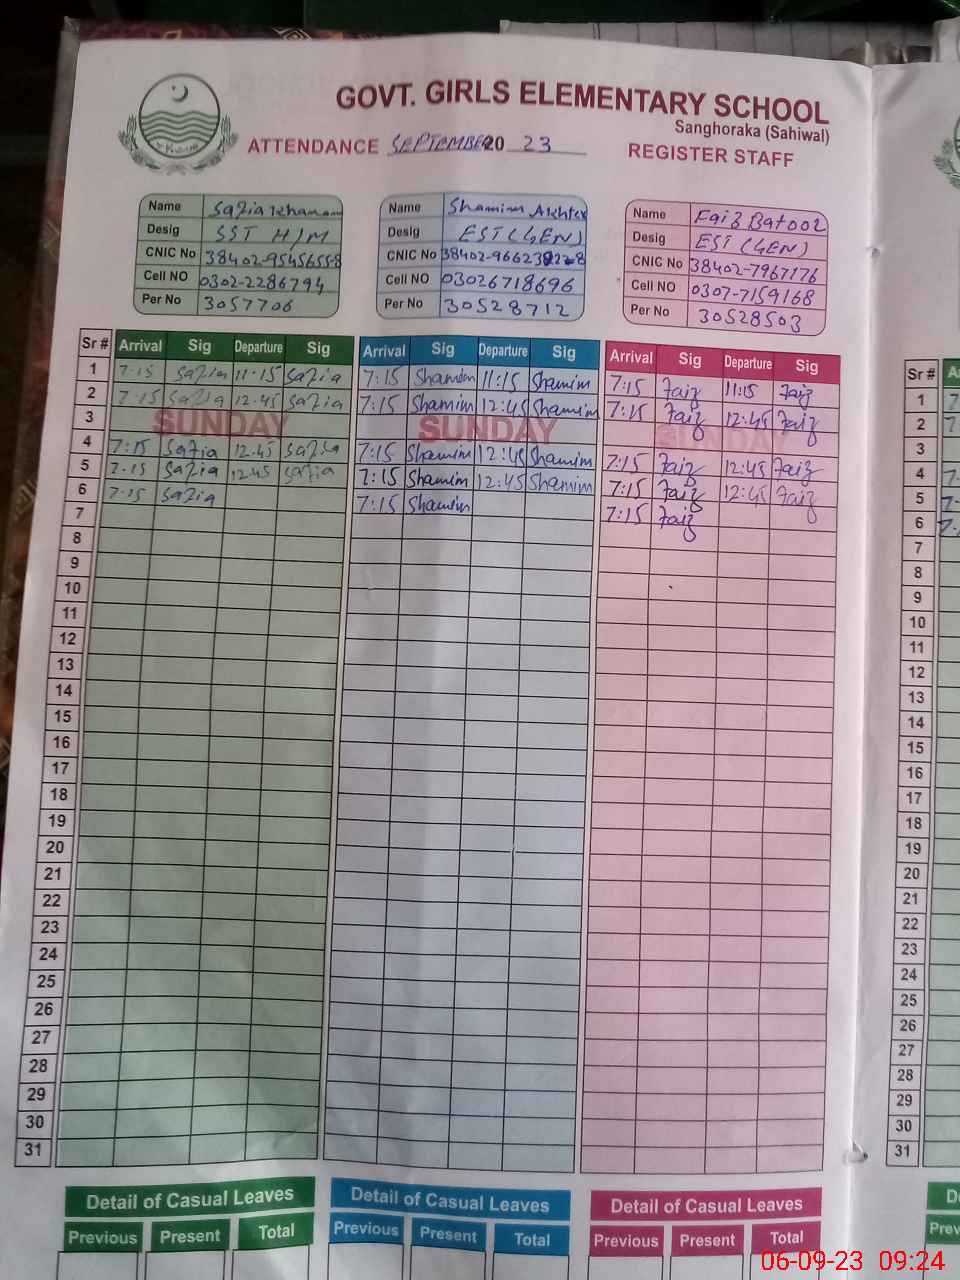 GOVT. GIRLS ELEMENTARY SCHOOL
Sanghoraka (Sahiwal)
ATTENDANCE SEPTEMBER 20 23 REGISTER STAFF
Name Safia Khanam
Desig SST H/M
CNIC No 38402-9545655-8
Cell NO 0302-2286794
Per No 3057706
Name Shamim Akhter
Desig EST (GEN)
CNIC No
Cell NO 03026718696
Per No 30528712
Name Faiz Batool
Desig EST (GEN)
CNIC No 38402-7967176
Cell NO 0307-7159168
Per No 30528503
Sr # Arrival Sig Departure Sig Arrival Sig Departure Sig Arrival Sig Departure Sig
1 7:15 Safia 11:15 Safia 7:15 Shamim 11:15 Shamim 7:15 Faiz 11:15 Faiz
2 7:15 Safia 12:45 Safia 7:15 Shamim 12:45 Shamim 7:15 Faiz 12:45 Faiz
3 SUNDAY SUNDAY SUNDAY
4 7:15 Safia 12:45 Safia 7:15 Shamim 12:45 Shamim 7:15 Faiz 12:45 Faiz
5 7:15 Safia 12:45 Safia 7:15 Shamim 12:45 Shamim 7:15 Faiz 12:45 Faiz
6 7:15 Safia 7:15 Shamim 7:15 Faiz
7
8
9
10
11
12
13
14
15
16
17
18
19
20
21
22
23
24
25
26
27
28
29
30
31
Detail of Casual Leaves Detail of Casual Leaves Detail of Casual Leaves
Previous Present Total Previous Present Total Previous Present Total
Sr #
1
2
3
4
5
6
7
8
9
10
11
12
13
14
15
16
17
18
19
20
21
22
23
24
25
26
27
28
29
30
31
06-09-23 09:24